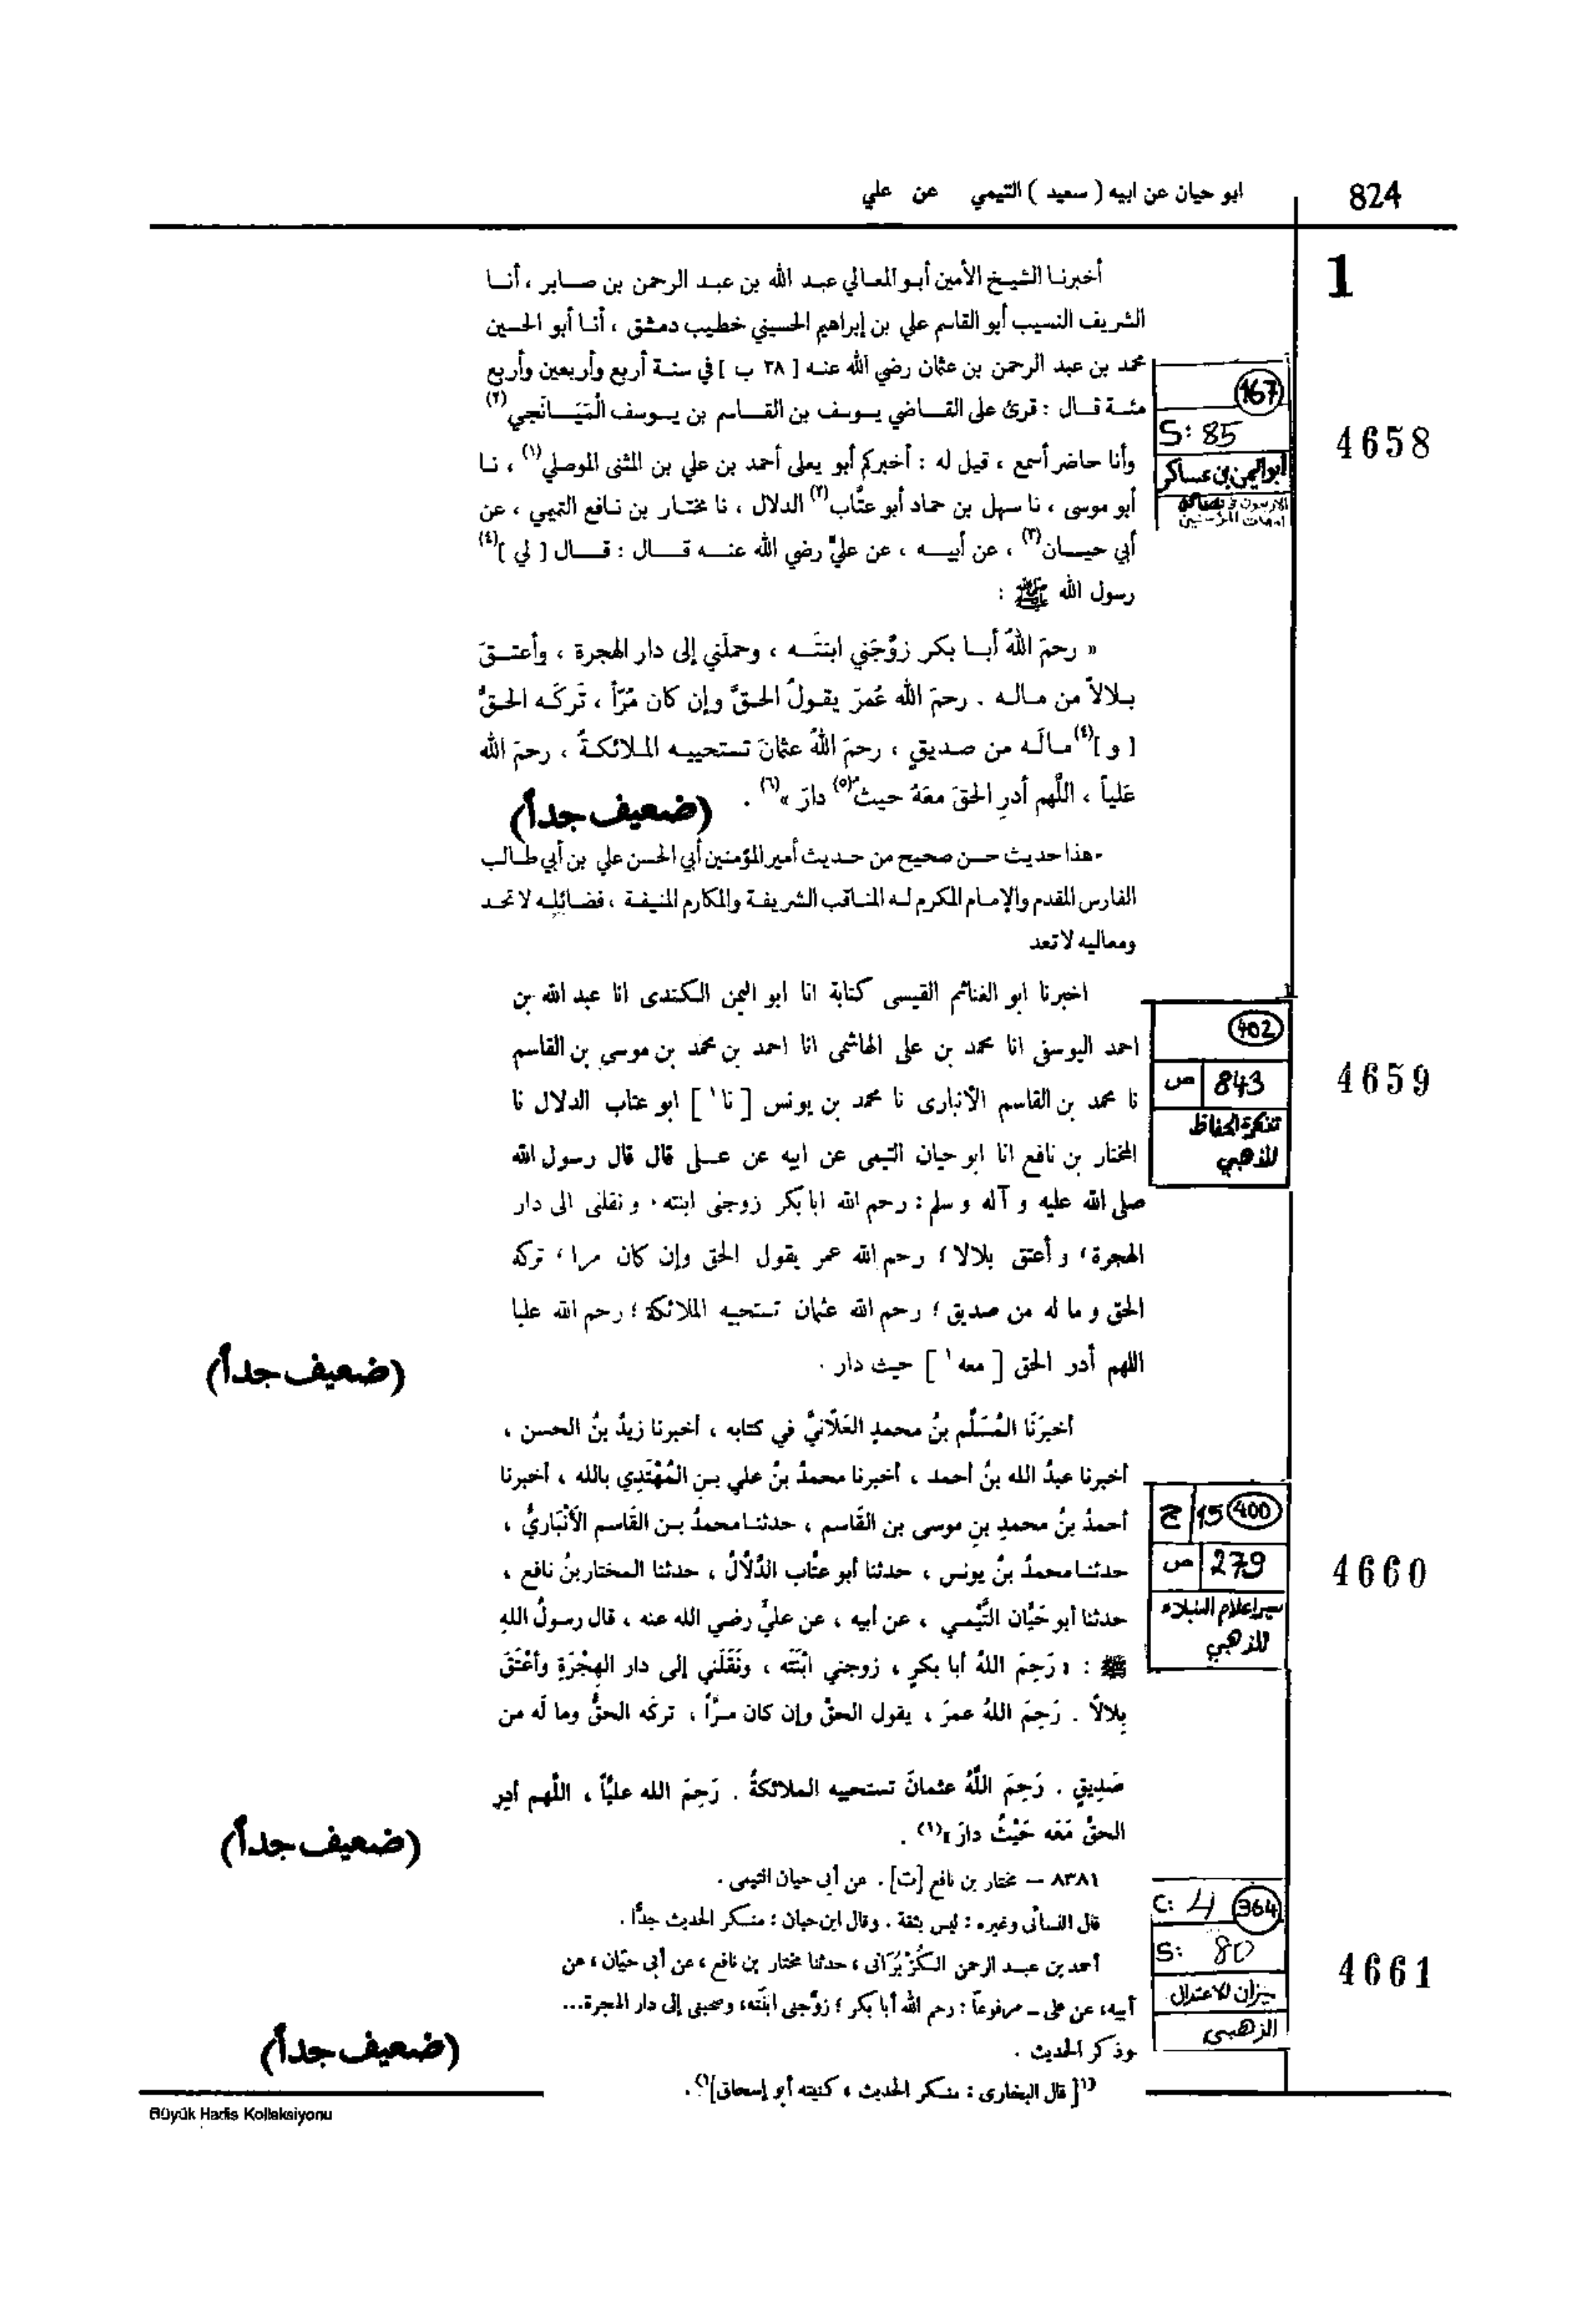 ابو حيان عن ابيه ( سعيد ) التيمي عن علي
824
1
أخبرنا الشيخ الأمين أبو المعالي عبد الله بن عبد الرحمن بن صابر ، أنا
الشريف النسيب أبو القاسم علي بن إبراهيم الحسيني خطيب دمشق ، أنا أبو الحسين
محمد بن عبد الرحمن بن عثمان رضي الله عنه [ ٣٨ ب ] في سنة أربع وأربعين وأربع
مئة قال : قرئ على القاضي يوسف بن القاسم بن يوسف الْمَيَانَجي(٢)
وأنا حاضر أسمع ، قيل له : أخبركم أبو يعلى أحمد بن علي بن المثنى الموصلي(١) ، نا
أبو موسى ، نا سهل بن حماد أبو عتَّاب(٢) الدلال ، نا مختار بن نافع التيمي ، عن
أبي حيان(٣) ، عن أبيه ، عن عليّ رضي الله عنه قال : قال [ لي ](٤)
رسول الله ﷺ :
« رحمَ اللهُ أبا بكر زوَّجَني ابنتَه ، وحملَني إلى دار الهجرة ، وأعتقَ
بلالاً من ماله . رحمَ الله عُمرَ يقولُ الحقَّ وإن كان مُرّاً ، تَركَه الحقُّ
[ و ](٤)مالَه من صديقٍ ، رحمَ اللهُ عثمانَ تستحييه الملائكةُ ، رحمَ الله
عَلياً ، اللَّهم أدرِ الحقَ معَهُ حيثُ(٥) دارَ »(٦) .
(ضعيف جداً)
-هذا حديث حسن صحيح من حديث أمير المؤمنين أبي الحسن علي بن أبي طالب
الفارس المقدم والإمام المكرم له المناقب الشريفة والمكارم المنيفة ، فضائله لا تحد
ومعاليه لا تعد
167
S: 85
أبو اليمن بن عساكر
4658
اخبرنا ابو الغنائم القيسى كتابة انا ابو اليمن الكندى انا عبد الله بن
احمد اليوسفى انا محمد بن على الهاشمى انا احمد بن محمد بن موسى بن القاسم
نا محمد بن القاسم الأنبارى نا محمد بن يونس [ نا١ ] ابو عتاب الدلال نا
المختار بن نافع انا ابو حيان التيمى عن ابيه عن على قال قال رسول الله
صلى الله عليه و آله و سلم : رحم الله ابا بكر زوجنى ابنته ، و نقلنى الى دار
الهجرة ، و أعتق بلالا ؛ رحم الله عمر يقول الحق وإن كان مرا ، تركه
الحق و ما له من صديق ؛ رحم الله عثمان تستحيه الملائكة ؛ رحم الله عليا
اللهم أدر الحق [ معه١ ] حيث دار .
(ضعيف جداً)
402
843 ص
تذكرة الحفاظ
للذهبي
4659
أخبرَنَا المُسَلَّم بنُ محمدٍ العَلّانيُّ في كتابه ، أخبرنا زيدُ بنُ الحسن ،
أخبرنا عبدُ الله بنُ أحمد ، أخبرنا محمدُ بنُ علي بن المُهْتَدِي بالله ، أخبرنا
أحمدُ بنُ محمدِ بنِ موسى بن القَاسم ، حدثنا محمدُ بن القَاسم الأَنْبَاريُّ ،
حدثنا محمدُ بنُ يونس ، حدثنا أبو عتَّاب الدَّلَّالُ ، حدثنا المختار بنُ نافع ،
حدثنا أبو حَيَّان التَّيْمي ، عن أبيه ، عن عليٍّ رضي الله عنه ، قال رسولُ اللهِ
ﷺ : « رَحِمَ اللهُ أبا بكرٍ ، زوجني ابْنَتَه ، ونَقَلَني إلى دار الهِجْرَةِ وأَعْتَقَ
بِلالاً . رَحِمَ اللهُ عمرَ ، يقول الحقَّ وإن كان مرّاً ، تركَه الحقُّ وما لَه من
صَدِيقٍ . رَحِمَ اللَّهُ عثمانَ تستحييه الملائكةُ . رَحِمَ الله عليّاً ، اللَّهم أدِر
الحقَّ مَعَه حَيْثُ دارَ »(١) .
(ضعيف جداً)
400 15 ج
279 ص
سير اعلام النبلاء
للذهبي
4660
٨٣٨١ – مختار بن نافع [ت] . عن أبى حيان التيمى .
قال النسأئى وغيره : ليس بثقة . وقال ابن حبان : منكر الحديث جدًّا .
أحمد بن عبد الرحمن الكُزْبُرَانى ، حدثنا مختار بن نافع ، عن أبى حيَّان ، عن
أبيه ، عن على – مرفوعاً : رحم الله أبا بكر ؛ زوَّجنى ابنَته ، وصحبنى إلى دار الهجرة...
وذكر الحديث .
(ضعيف جداً)
١)[ قال البخارى : منكر الحديث ، كنيته أبو إسحاق ]١) .
C: 4 364
S: 80
ميزان الاعتدال
الذهبي
4661
Büyük Hadis Kolleksiyonu